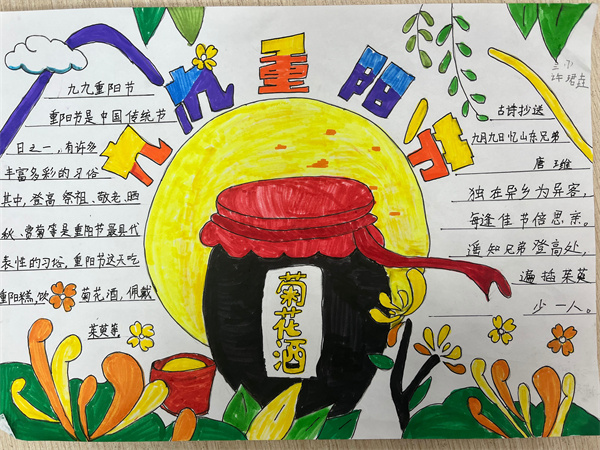 九九重阳节
九九重阳节
重阳节是中国传统节
日之一，有许多
丰富多彩的习俗
其中，登高祭祖、敬老、晒
秋、赏菊等是重阳节最具代
表性的习俗，重阳节这天吃
重阳糕，饮菊花酒，佩戴
茱萸等
菊花酒
古诗抄送
九月九日忆山东兄弟
唐 王维
独在异乡为异客，
每逢佳节倍思亲。
遥知兄弟登高处，
遍插茱萸
少一人。